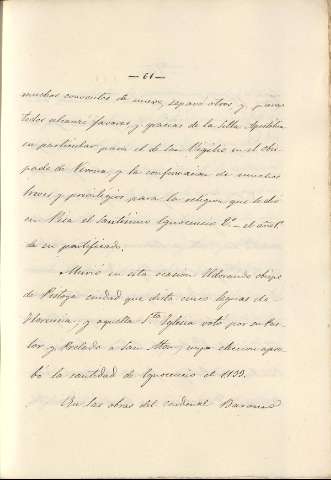 — 61 —
muchos conventos de nuevo, reparó otros y para
todos alcanzó favores y gracias de la Silla Apostólica
en particular para el de San Virgilio en el obis-
pado de Verona, y la confirmación de muchos
breves y privilegios para la religión que le dió
en Pisa el santísimo Ignocencio 2º - el año 1º
de su pontificado.
Murió en esta ocasion Ildorando obispo
de Pistoya ciudad que dista cinco leguas de
Florencia, y aquella Sta Iglesia votó por su Pas-
tor y Prelado a San Aton, cuya eleccion apro-
bó la santidad de Ignocencio el 1133.
En las obras del cardenal Baronio